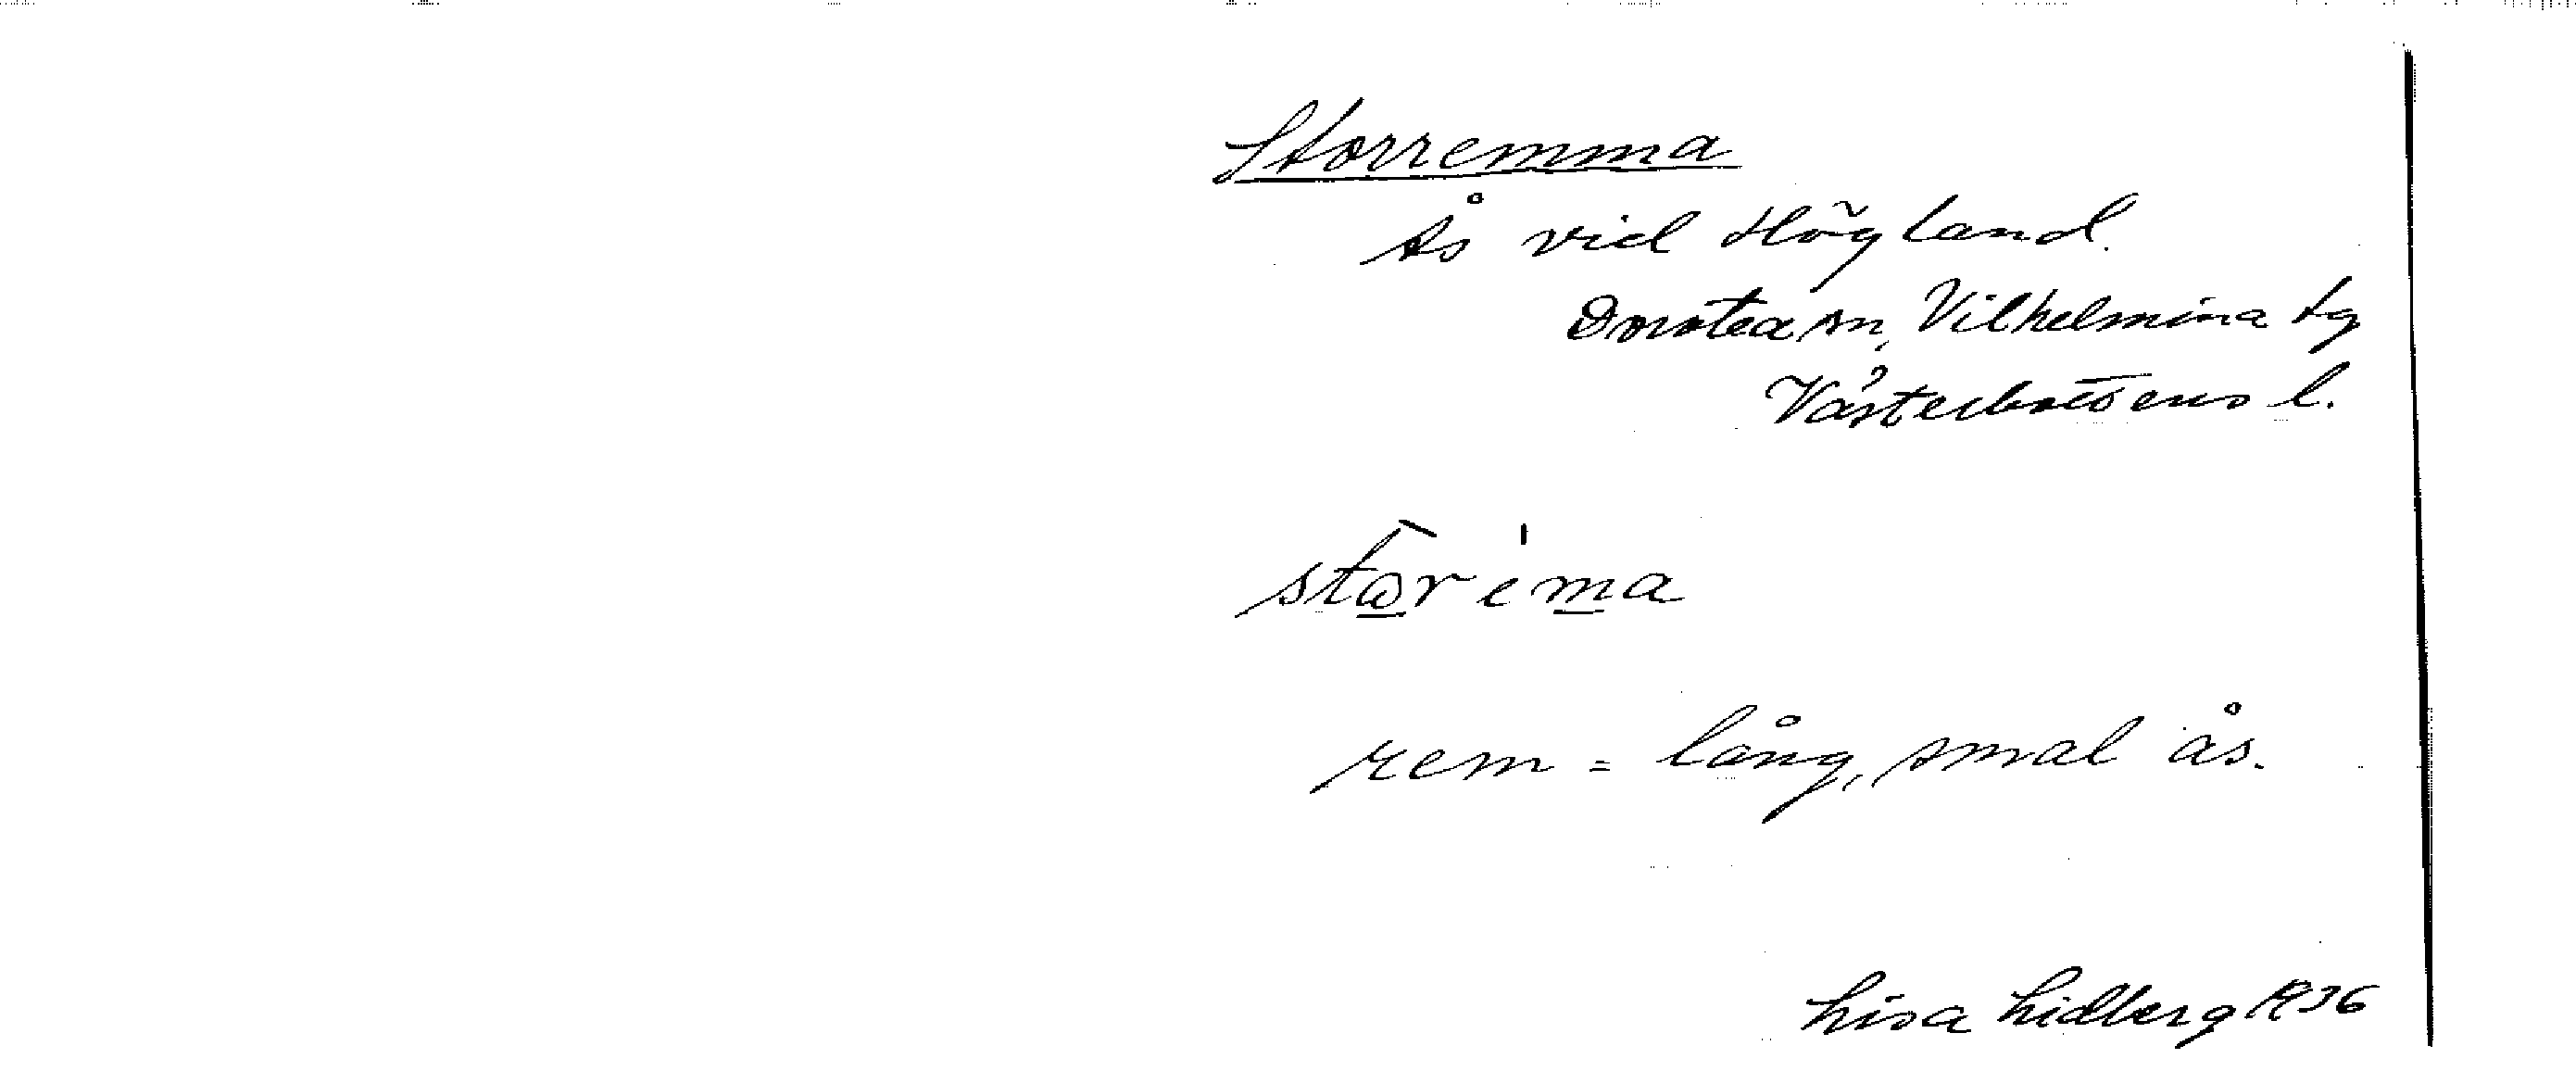 Storremma
Ås vid Högland.
Dorotea sn, Vilhelmina tg
Västerbottens l.
storema
rem = lång, smal ås.
Lisa Lidberg 1936